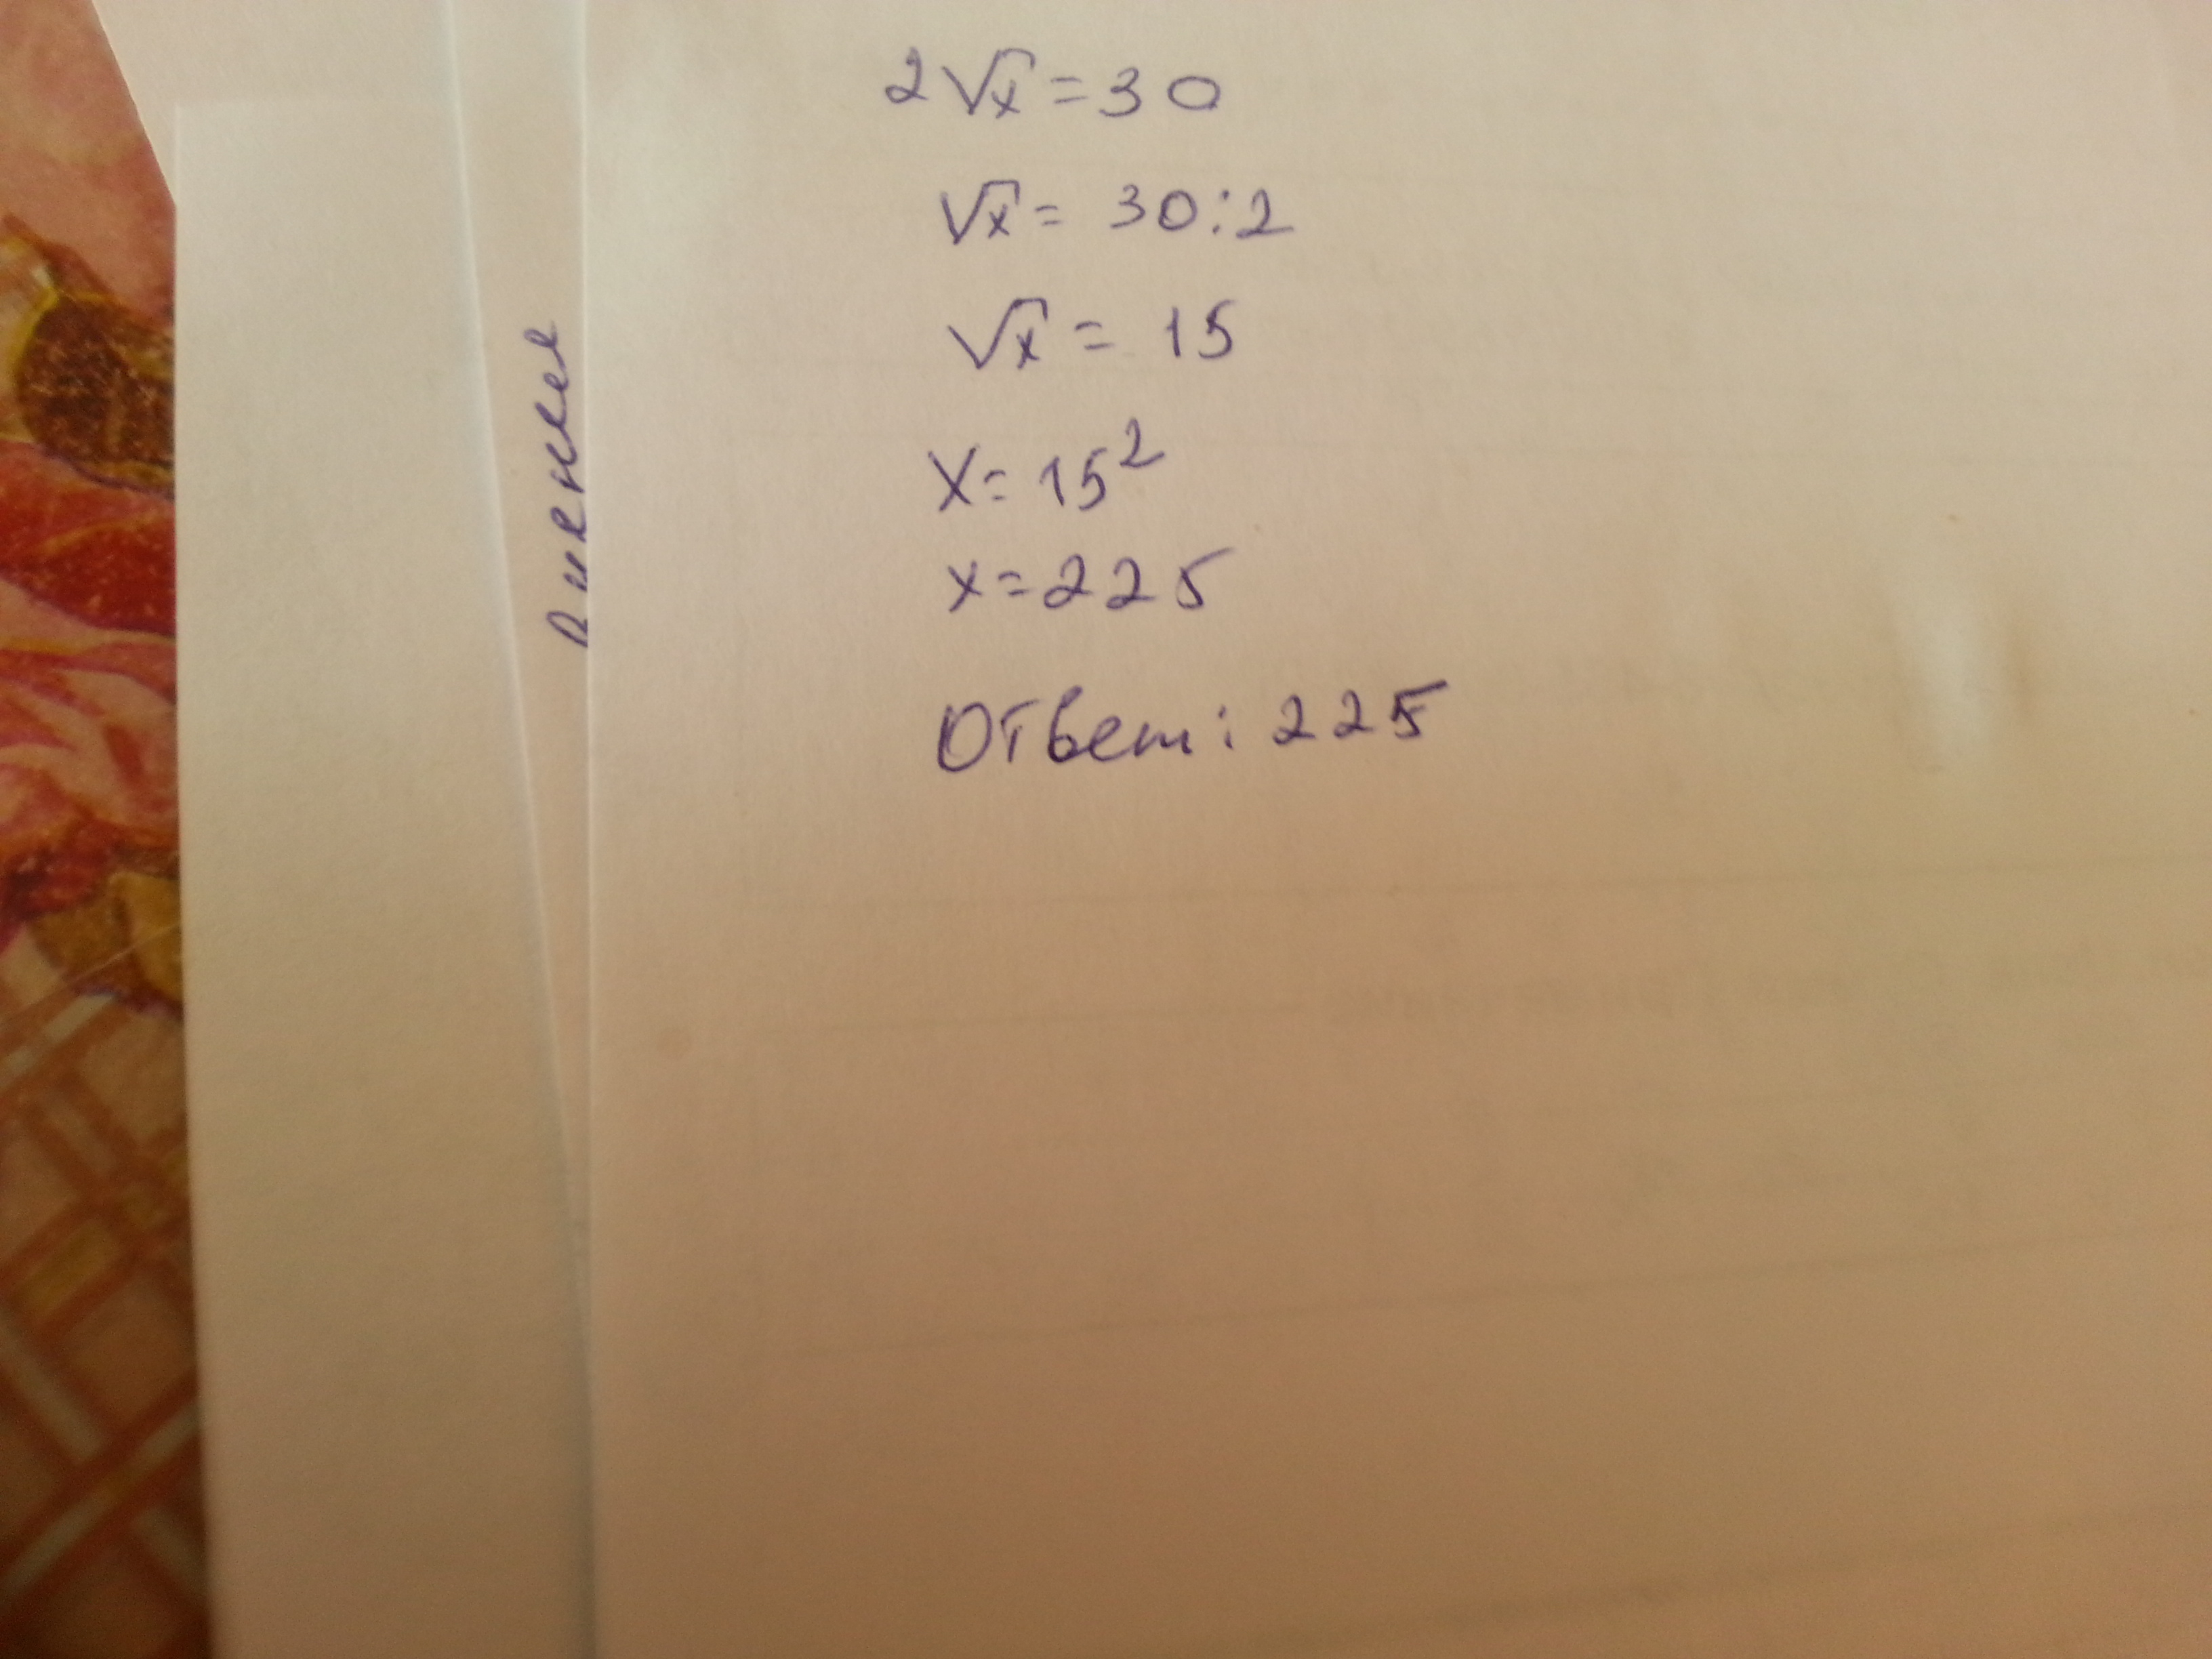 2√x = 30
√x = 30:2
√x = 15
x = 15²
x = 225
Ответ: 225